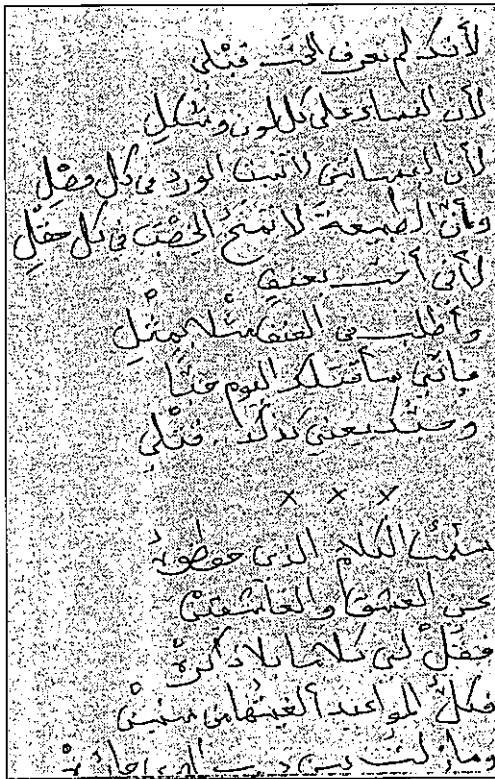 لأنك لم تعرف الحب قبلي
لأن النساء على كل لون وشكلِ
لأن البساتين لا تنبت الورد في كل فصْلِ
وأنّ الطبيعةَ لا تمنَحُ الخِصْبَ في كل حقلِ
لأني أحب بعنفٍ
وأطلب في العنف مثلا بمِثْلِ
فإنني سأقتلك اليوم حبًّا
وحبّك يعني كذلك قتْلي
× × ×
سئمتُ الكلام الذي حفظوهُ
عن العشق والعاشقين
فقلْ لي كلاما بلا ذاكرهْ
فكلّ المواعيد ألغيتُها من سنين
وما زلت